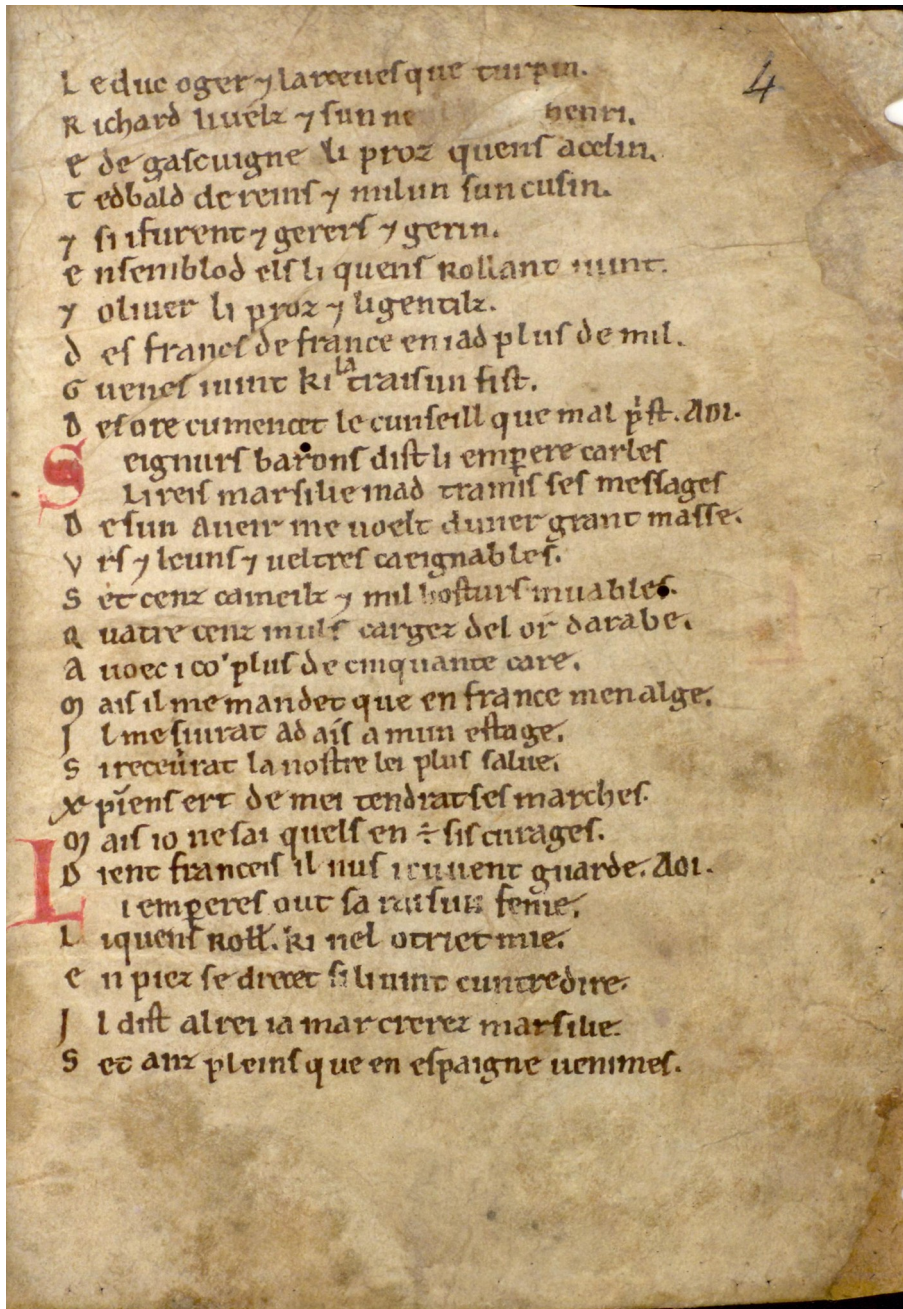 4
L e duc oger ⁊ larceuesque turpin.
R ichard li uelz ⁊ sun ne henri.
E de gascuigne li proz quens acelin.
T edbald de reins ⁊ milun sun cusin.
⁊ si i furent ⁊ gerers ⁊ gerin.
E nsembl od els li quens rollant i uint.
⁊ oliuer li proz ⁊ li gentilz.
D es francs de france en i ad plus de mil.
G uenes i uint ki la traisun fist.
D es ore cumencet le cunseill que mal p̛st. AOI.
S eignurs barons dist li emp̲ere carles
Li reis marsilie mad tramis ses messages
D e sun aueir me uoelt duner grant masse.
V rs ⁊ leuns ⁊ ueltres caeignables.
S et cenz cameilz ⁊ mil hosturs muables.
Q uatre cenz muls cargez del or darabe.
A uoec ico plus de cinquante care.
M ais il me mandet que en france men alge.
I l me siurat ad ais a mun estage.
S i receu̅rat la nostre lei plus salue.
X p̅iens ert de mei tendrat ses marches.
M ais io ne sai quels en ÷ sis curages.
D ient franceis il nus i cuuent guarde. AOI.
L i emp̲eres out sa raisun fenie.
L i quens roll̅. ki ne l otriet mie.
E n piez se drecet si li uint cuntredire.
I l dist al rei ia mar crerez marsilie.
S et anz pleins que en espaigne uenimes.